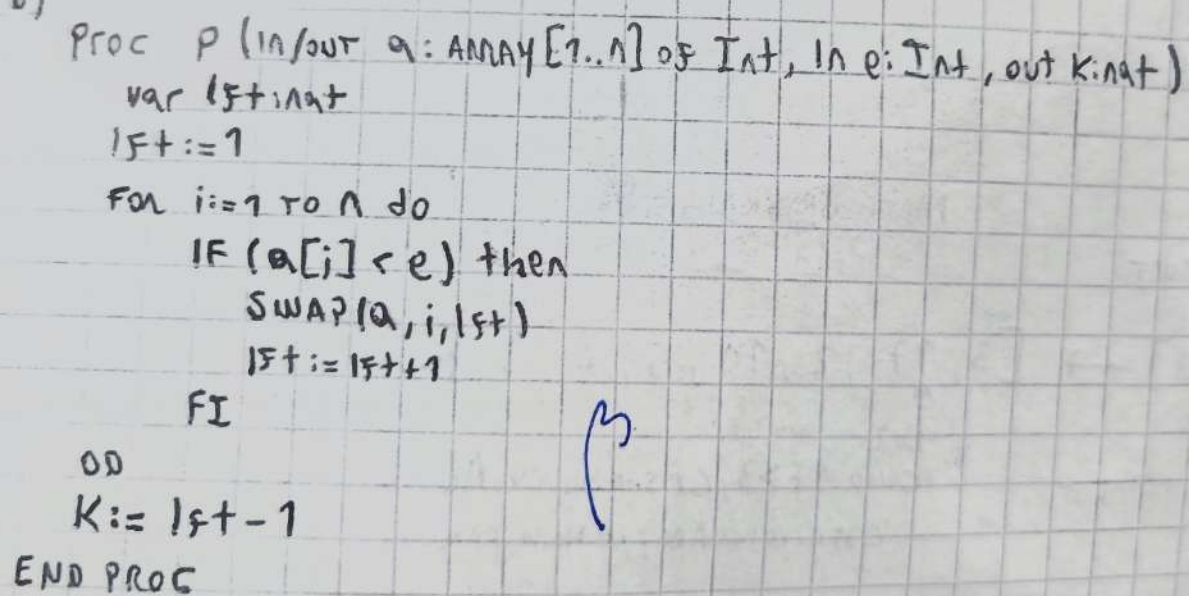 b)
Proc P (In/out a: ARRAY [1..n] of Int, In e: Int, out K: nat)
var lft: nat
lft := 1
For i:=1 TO n do
IF (a[i] < e) then
SWAP(a, i, lft)
lft := lft + 1
FI
OD
K := lft - 1
END PROC